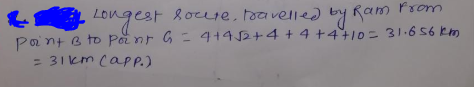 Longest route, travelled by Ram from
point B to point G = 4+4√2+4+4+4+10= 31.656 km
= 31 km (app.)